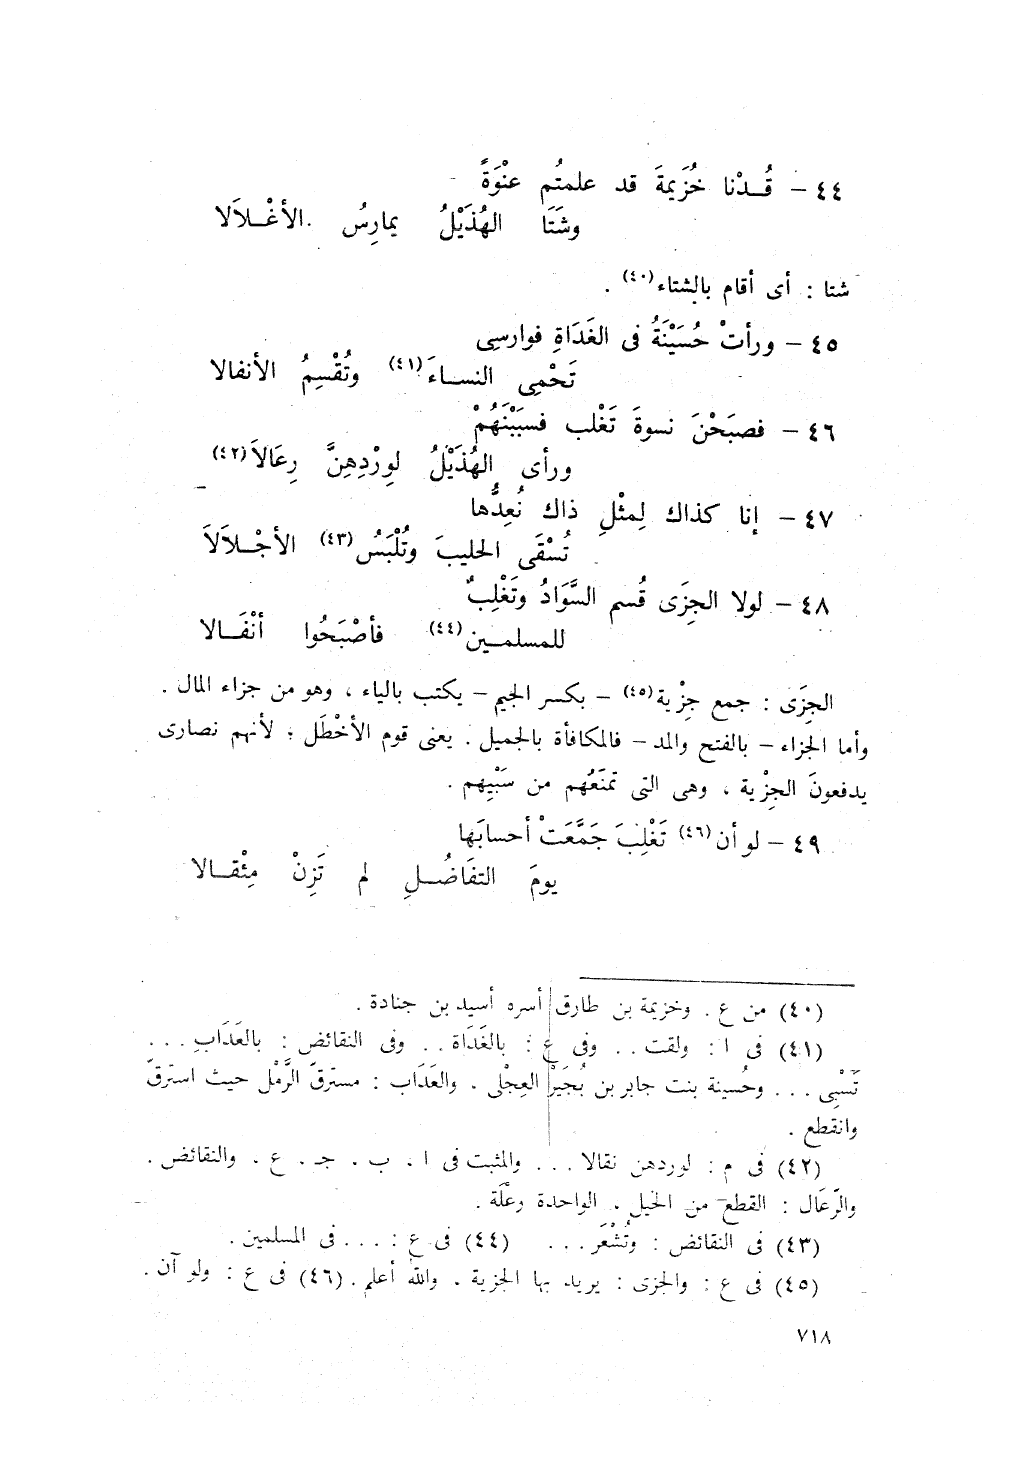 ٤٤ – قُـدْنا خُزَيمةَ قد علمتُم عنْوَةً
وشَتَا الهُذَيْلُ يمارِسُ الأغْـلاَلا
شتا : أى أقام بالشتاء(٤٠) .
٤٥ – ورأتْ حُسَيْنَةُ فى الغَدَاةِ فوارسِى
تَحْمِى النسـاءَ(٤١) وتُقْسِمُ الأنفالا
٤٦ – فصبَحْنَ نسوةَ تَغْلب فسَبَيْنَهُمْ
ورأى الهُذَيْلُ لوِرْدِهِنَّ رِعَالاَ(٤٢)
٤٧ – إنا كذاك لِمثْلِ ذاك نُعِدُّها
تُسْقَى الحليبَ وتُلْبَسُ(٤٣) الأجْـلاَلاَ
٤٨ – لولا الجِزَى قُسم السَّوَادُ وتَغْلِبٌ
للمسلمـين(٤٤) فأصْبَحُوا أنْفَـالا
الجِزَى : جمع جِزْية(٤٥) – بكسر الجيم – يكتب بالياء ، وهو من جزاء المال .
وأما الجزاء – بالفتح والمد – فالمكافأة بالجميل . يعنى قوم الأخْطَل ؛ لأنهم نصارى
يدفعونَ الجِزْية ، وهى التى تمنَعُهم من سَبْيِهم .
٤٩ – لو أن(٤٦) تَغْلِبَ جَمَّعَتْ أحسابَها
يومَ التفَاضُـلِ لم تَزِنْ مِثْقـالا
(٤٠) من ع . وخزيمة بن طارق أسره أسيد بن جنادة .
(٤١) فى ا : ولقت . . وفى ع : بالغَدَاة . . وفى النقائض : بالعَدَابِ . . .
تَسْبِى . . . وحُسينة بنت جابر بن بُجَيْر العِجْلى . والعَدَاب : مسترقّ الرَّمْل حيث استرقّ
وانقطع .
(٤٢) فى م : لوردهن نقالا . . . والمثبت فى ا . ب . جـ . ع . والنقائض .
والرِّعَال : القطع من الخيل . الواحدة رعْلَة .
(٤٣) فى النقائض : وتُشْعَر . . . (٤٤) فى ع : . . . فى المسلمين .
(٤٥) فى ع : والجزى : يريد بها الجزية . والله أعلم . (٤٦) فى ع : ولو آن .
٧١٨